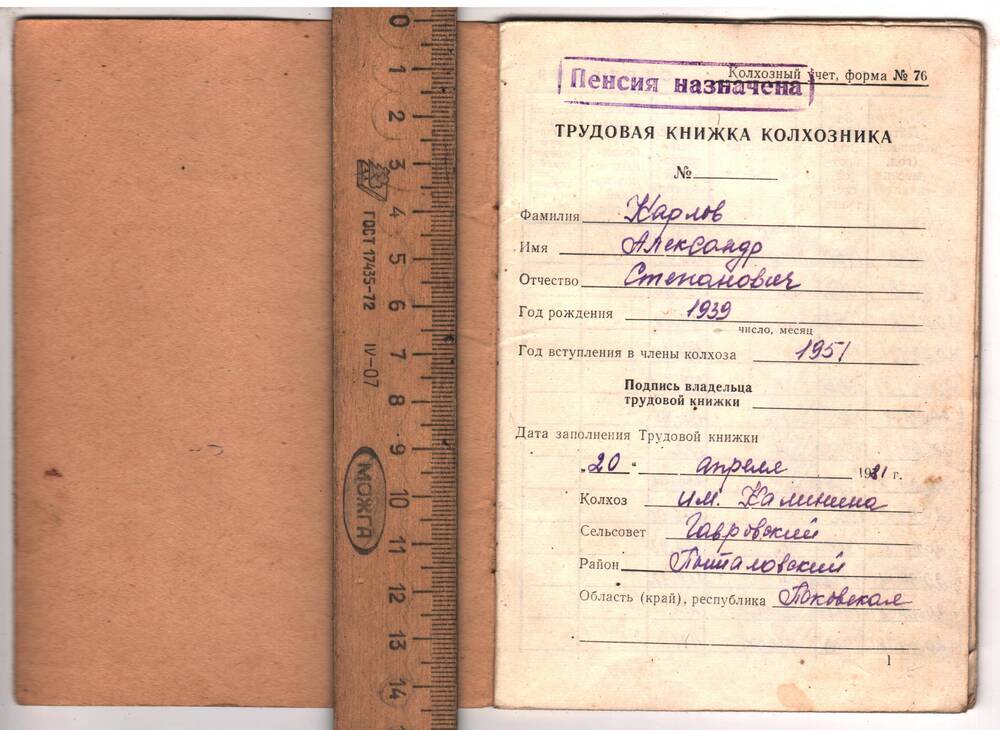 0 1 2 3 4 5 6 7 8 9 10 11 12 13 14
ГОСТ 17435-72 IV-07
МОЖГА
Колхозный учет, форма № 76
Пенсия назначена
ТРУДОВАЯ КНИЖКА КОЛХОЗНИКА
№
Фамилия Карлов
Имя Александр
Отчество Степанович
Год рождения 1939
число, месяц
Год вступления в члены колхоза 1951
Подпись владельца
трудовой книжки
Дата заполнения Трудовой книжки
„20“ апреля 1981 г.
Колхоз им. Калинина
Сельсовет Гавровский
Район Пыталовский
Область (край), республика Псковская
1